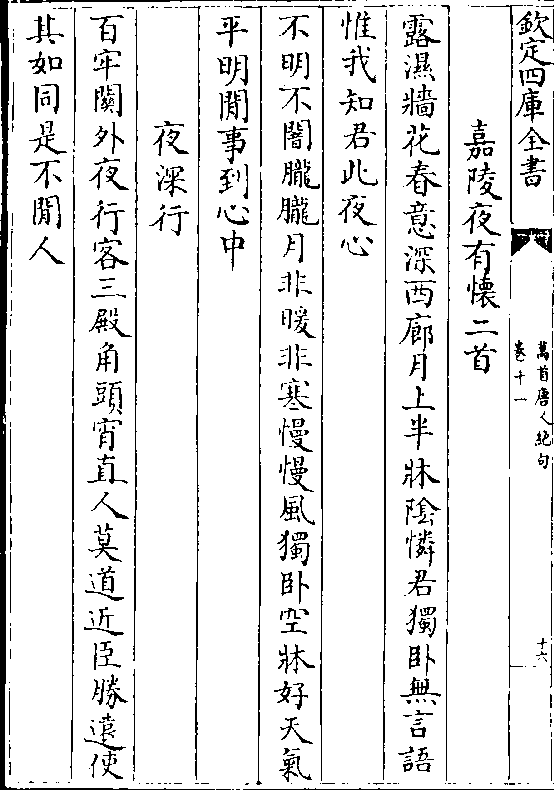 欽定四庫全書
萬首唐人絶句
卷十一
十六
嘉陵夜有懷二首
露濕牆花春意深西廊月上半牀陰憐君獨卧無言語
惟我知君此夜心
不明不闇朧朧月非暖非寒慢慢風獨卧空牀好天氣
平明閒事到心中
夜深行
百牢闗外夜行客三殿角頭宵直人莫道近臣勝遠使
其如同是不閒人